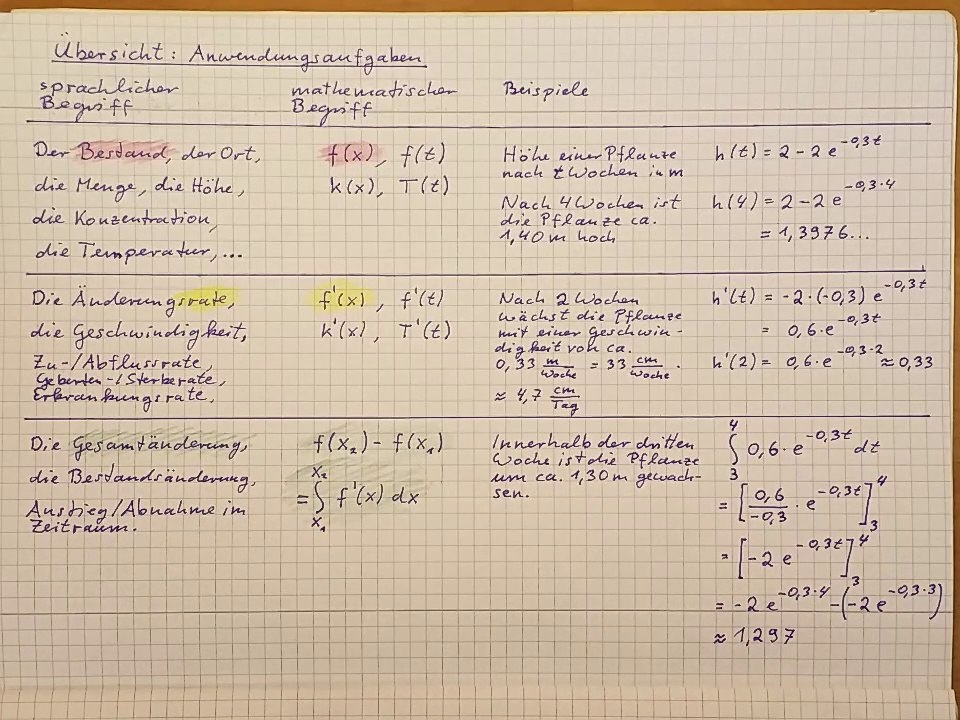 Übersicht: Anwendungsaufgaben
sprachlicher Begriff
mathematischer Begriff
Beispiele
Der Bestand, der Ort,
die Menge, die Höhe,
die Konzentration,
die Temperatur,...
f(x), f(t)
k(x), T(t)
Höhe einer Pflanze
nach t Wochen in m
Nach 4 Wochen ist
die Pflanze ca.
1,40 m hoch
h(t) = 2 - 2 e^{-0,3t}
h(4) = 2 - 2 e^{-0,3·4}
= 1,3976...
Die Änderungsrate,
die Geschwindigkeit,
Zu-/Abflussrate,
Geburten-/Sterberate,
Erkrankungsrate,
f'(x), f'(t)
k'(x), T'(t)
Nach 2 Wochen
wächst die Pflanze
mit einer Geschwin-
digkeit von ca.
0,33 m/Woche = 33 cm/Woche.
≈ 4,7 cm/Tag
h'(t) = -2·(-0,3) e^{-0,3t}
= 0,6·e^{-0,3t}
h'(2) = 0,6·e^{-0,3·2} ≈ 0,33
Die Gesamtänderung,
die Bestandsänderung,
Anstieg/Abnahme im
Zeitraum.
f(x₂) - f(x₁)
= ∫_{x₁}^{x₂} f'(x) dx
Innerhalb der dritten
Woche ist die Pflanze
um ca. 1,30 m gewach-
sen.
∫_3^4 0,6·e^{-0,3t} dt
= [0,6/-0,3 · e^{-0,3t}]_3^4
= [-2 e^{-0,3t}]_3^4
= -2 e^{-0,3·4} - (-2 e^{-0,3·3})
≈ 1,297